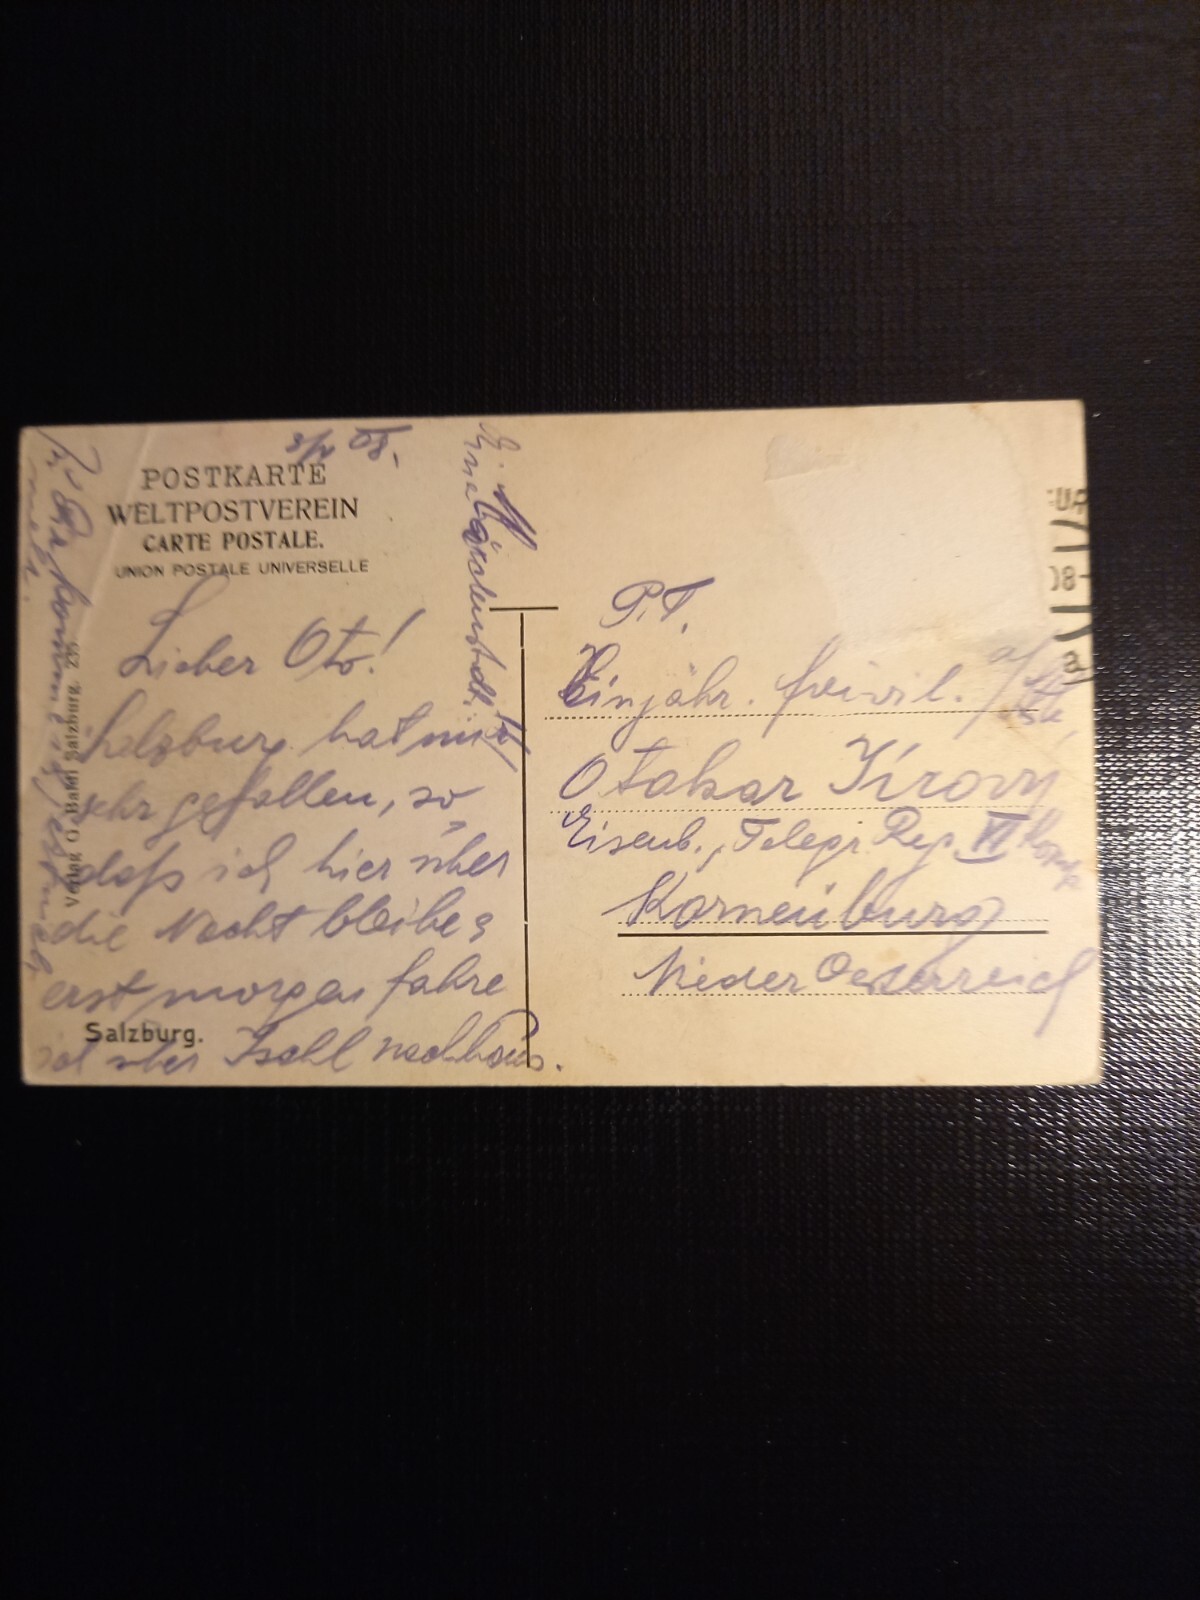 08.
POSTKARTE
WELTPOSTVEREIN
CARTE POSTALE.
UNION POSTALE UNIVERSELLE
Lieber Oto!
Salzburg hat mir
sehr gefallen, so
daß ich hier über
die Nacht bleibe &
erst morgen fahre
ich über Ischl nachhaus.
Salzburg.
Verlag G. Baldi Salzburg. 235
P.T.
Einjähr. freiwil.
Otakar
Eisenb. Telegr. Reg. VI Komp
Korneuburg
Nieder Oesterreich